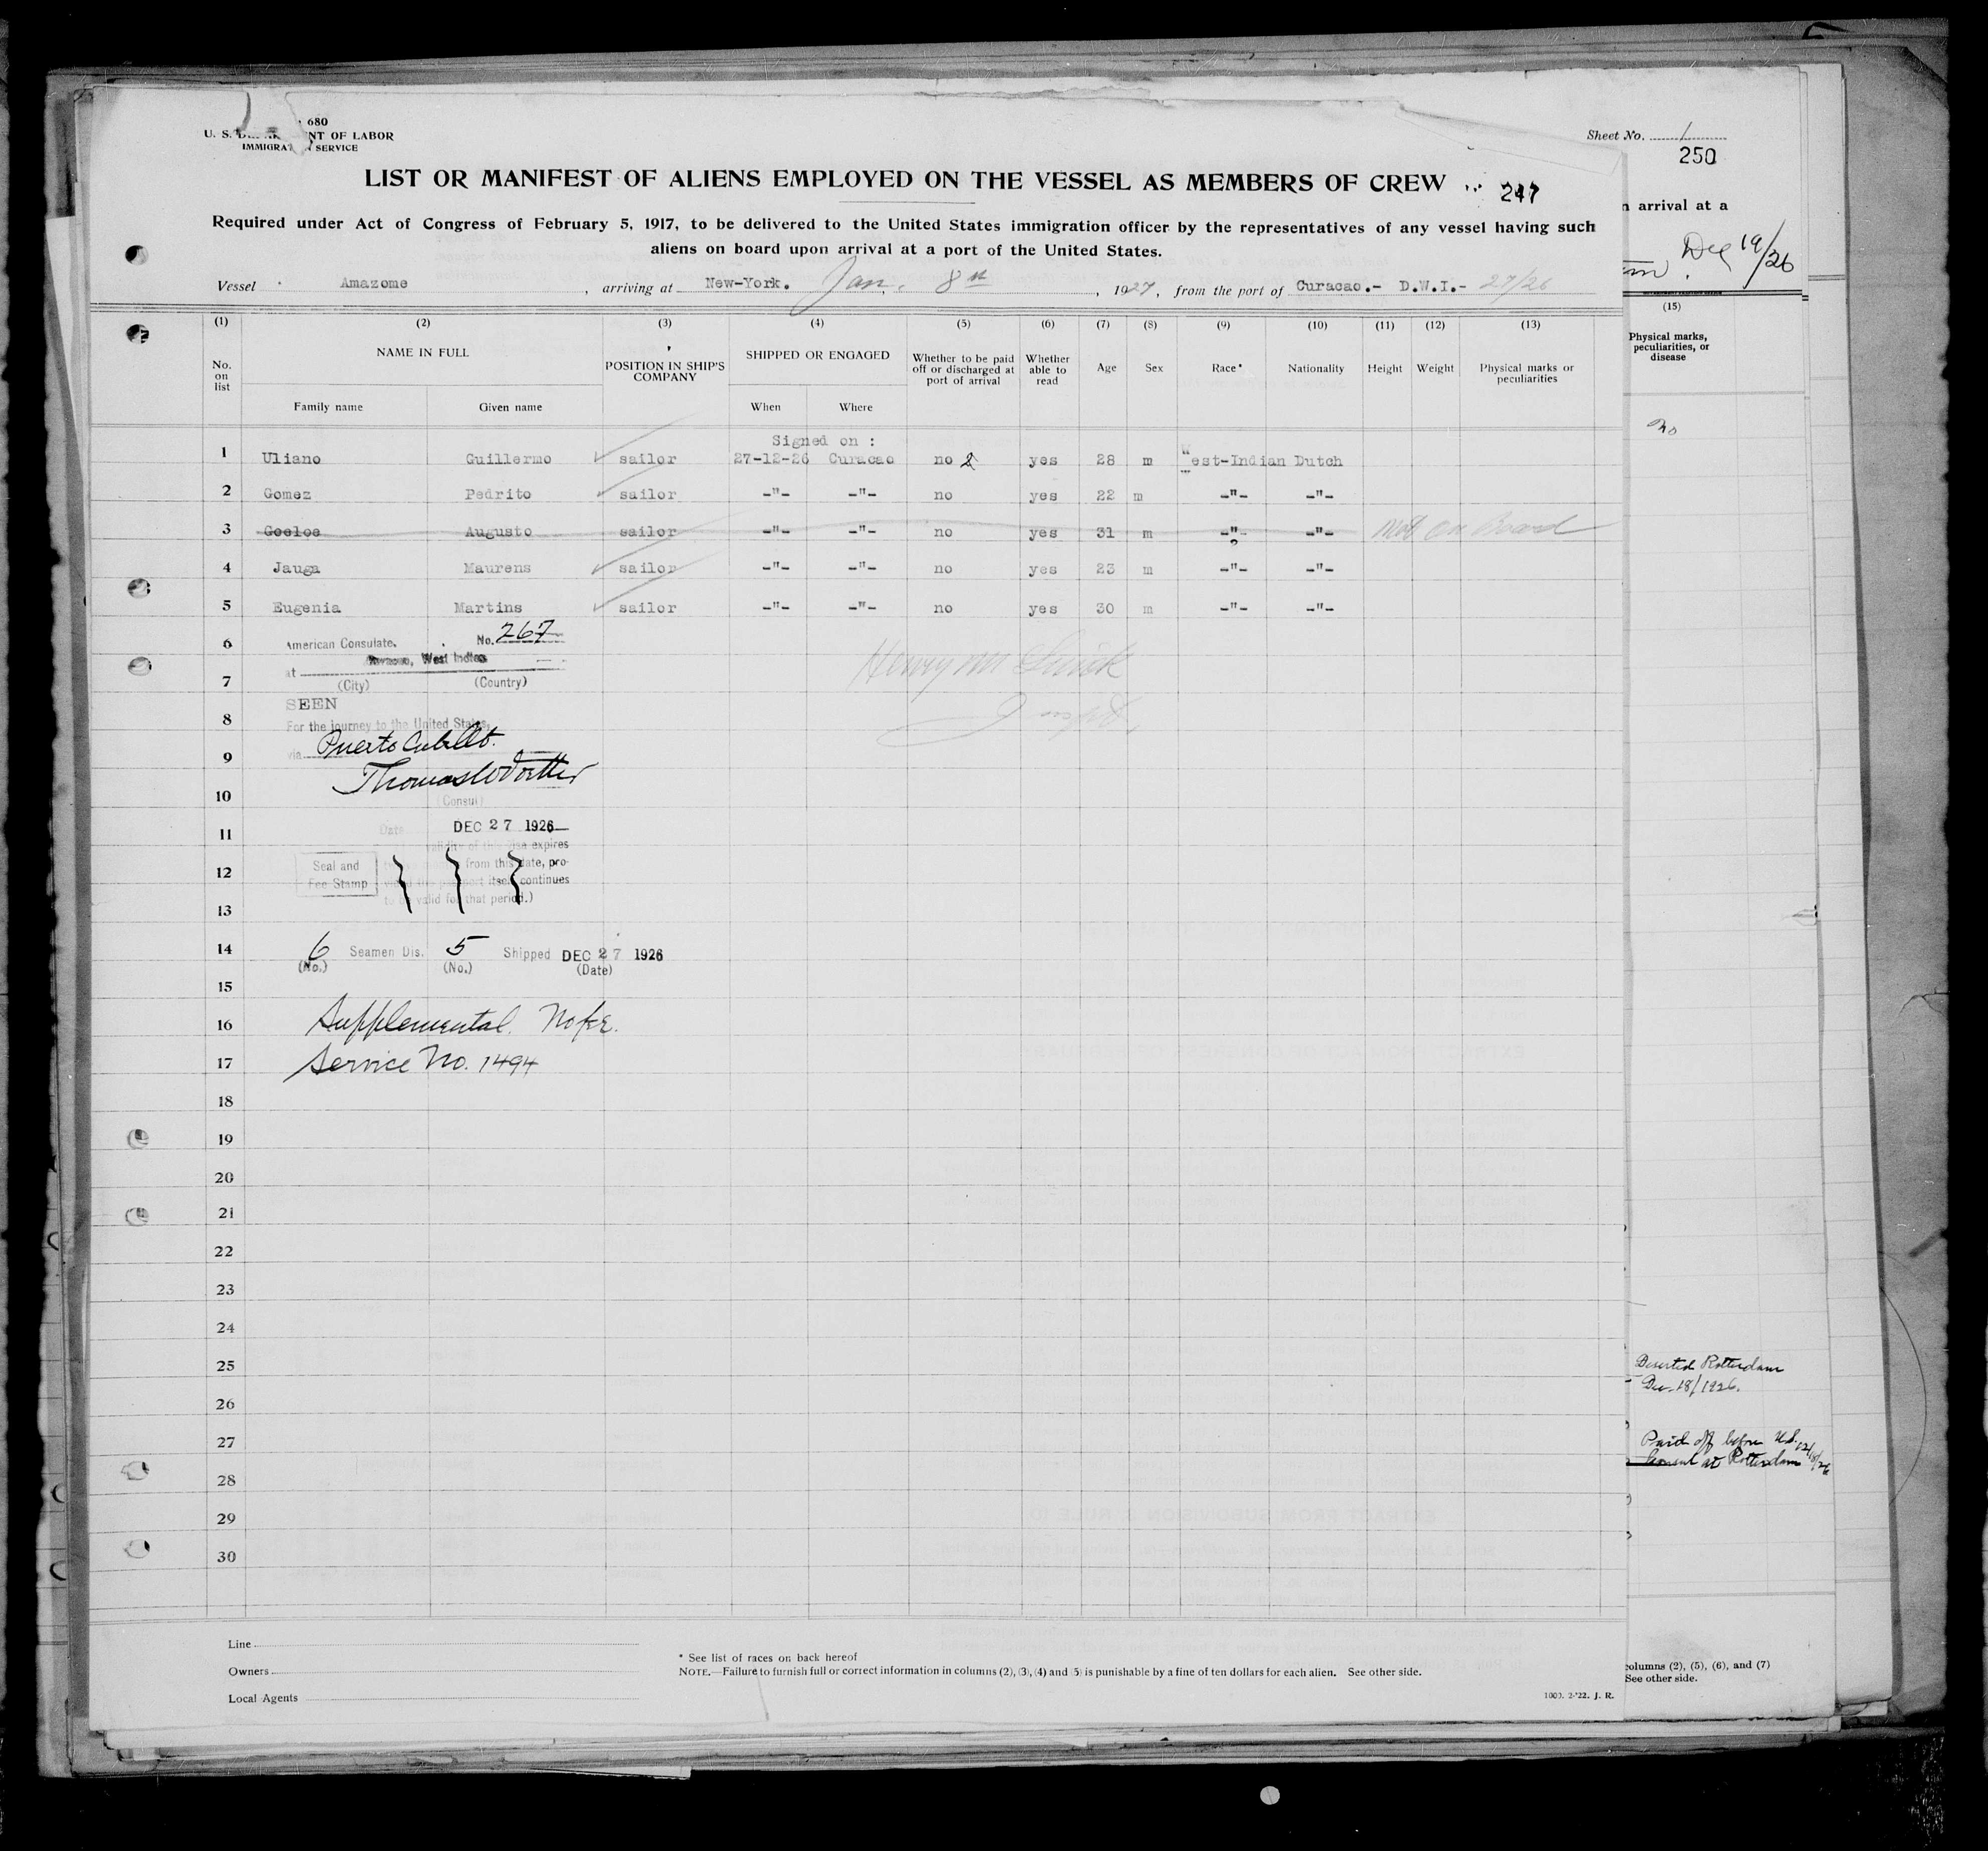 680
U. S. DEPARTMENT OF LABOR
IMMIGRATION SERVICE
Sheet No. 1
250
LIST OR MANIFEST OF ALIENS EMPLOYED ON THE VESSEL AS MEMBERS OF CREW
247
Required under Act of Congress of February 5, 1917, to be delivered to the United States immigration officer by the representatives of any vessel having such
aliens on board upon arrival at a port of the United States.
n arrival at a
Dec 19/26
Vessel Amazome, arriving at New-York. Jan. 8th, 1927, from the port of Curacao.- D.W.I.- 27/26
(1) (2) (3) (4) (5) (6) (7) (8) (9) (10) (11) (12) (13)
(15)
No. on list
NAME IN FULL
Family name Given name
POSITION IN SHIP'S COMPANY
SHIPPED OR ENGAGED
When Where
Whether to be paid off or discharged at port of arrival
Whether able to read
Age Sex Race* Nationality Height Weight
Physical marks or peculiarities
Physical marks, peculiarities, or disease
No
Signed on :
1 Uliano Guillermo sailor 27-12-26 Curacao no yes 28 m West-Indian Dutch
2 Gomez Pedrito sailor -"- -"- no yes 22 m -"- -"-
3 Goeloe Augusto sailor -"- -"- no yes 31 m -"- -"- Not on Board
4 Jauga Maurens sailor -"- -"- no yes 23 m -"- -"-
5 Eugenia Martins sailor -"- -"- no yes 30 m -"- -"-
6 American Consulate. No. 267
at West Indies
7 (City) (Country)
SEEN
8 For the journey to the United States,
9 via Puerto Cabello.
10 (Consul)
11 Date DEC 27 1926
validity of this visa expires
12 Seal and from this date, pro-
Fee Stamp vided the passport itself continues
13 to be valid for that period.)
14 6 Seamen Dis. 5 Shipped DEC 27 1926
(No.) (No.) (Date)
15
16 Supplemental. No fee.
17 Service No. 1494
18
19
20
21
22
23
24
25
26
27
28
29
30
Deserted Rotterdam
Dec. 18/1926.
Paid off before U.S.
Consul at Rotterdam 12/18/26
Line
Owners
Local Agents
* See list of races on back hereof
NOTE.—Failure to furnish full or correct information in columns (2), (3), (4) and (5) is punishable by a fine of ten dollars for each alien. See other side.
1000. 2-'22. J. R.
columns (2), (5), (6), and (7)
See other side.